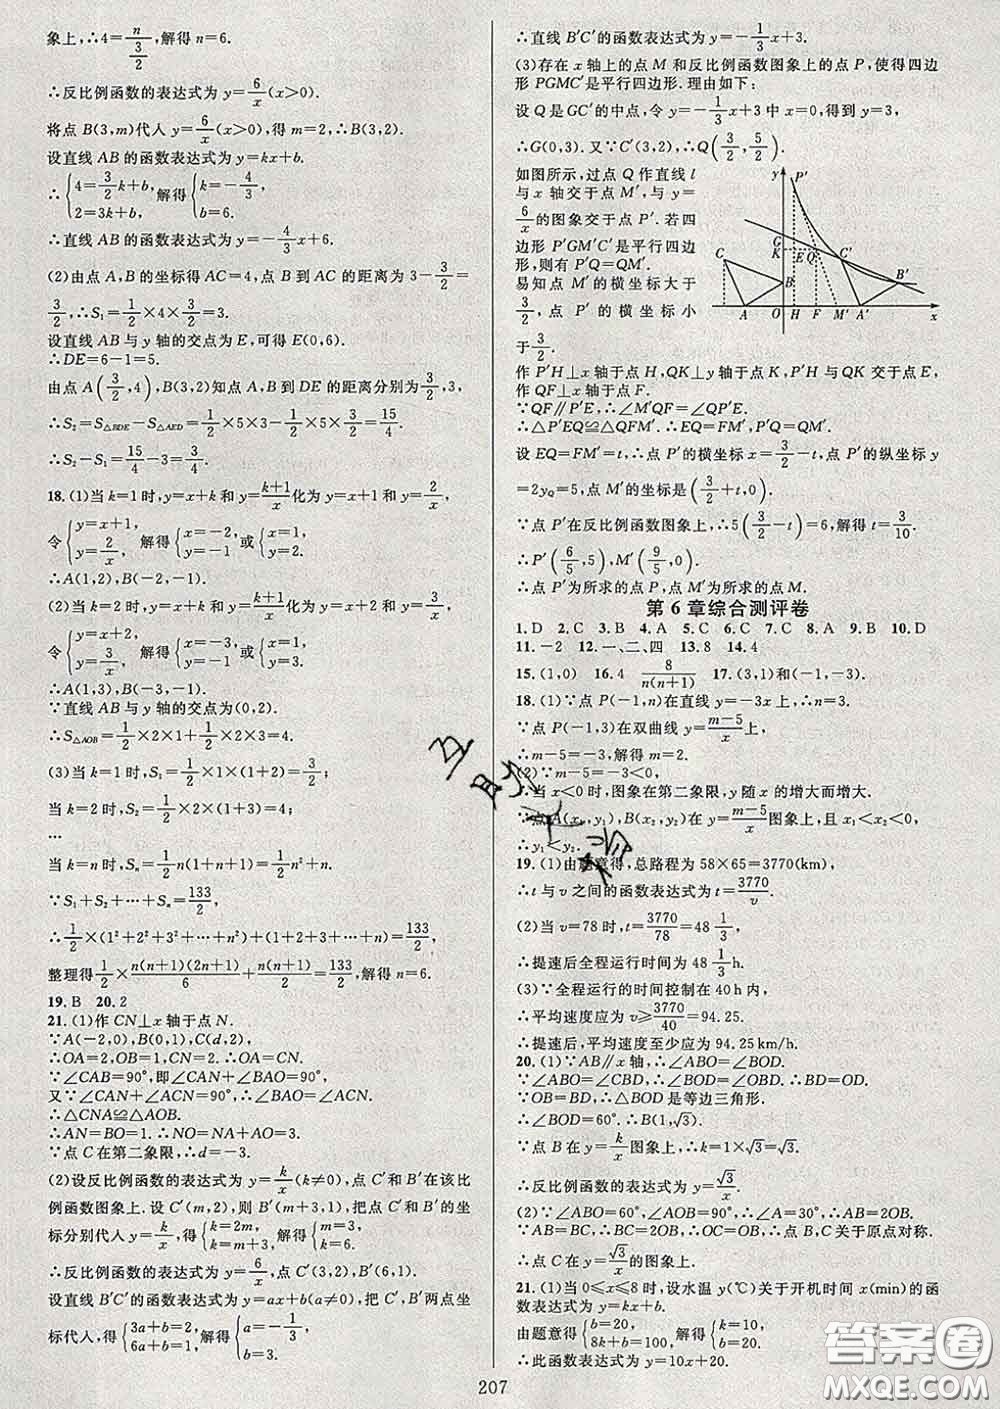 象上,∴4=n/(3/2),解得 n=6.
∴反比例函数的表达式为 y=6/x(x>0).
将点 B(3,m)代入 y=6/x(x>0),得 m=2,∴B(3,2).
设直线 AB 的函数表达式为 y=kx+b.
∴{4=3/2k+b, 2=3k+b, 解得{k=-4/3, b=6.
∴直线 AB 的函数表达式为 y=-4/3x+6.
(2)由点 A,B 的坐标得 AC=4,点 B 到 AC 的距离为 3-3/2=
3/2,∴S₁=1/2×4×3/2=3.
设直线 AB 与 y 轴的交点为 E,可得 E(0,6).
∴DE=6-1=5.
由点 A(3/2,4),B(3,2)知点 A,B 到 DE 的距离分别为3/2,3,
∴S₂=S△BDE-S△AED=1/2×5×3-1/2×5×3/2=15/4.
∴S₂-S₁=15/4-3=3/4.
18.(1)当 k=1 时,y=x+k 和 y=(k+1)/x化为 y=x+1 和 y=2/x,
令{y=x+1, y=2/x, 解得{x=-2, y=-1 或{x=1, y=2.
∴A(1,2),B(-2,-1).
(2)当 k=2 时,y=x+k 和 y=(k+1)/x化为 y=x+2 和 y=3/x,
令{y=x+2, y=3/x, 解得{x=-3, y=-1 或{x=1, y=3.
∴A(1,3),B(-3,-1).
∵直线 AB 与 y 轴的交点为(0,2).
∴S△AOB=1/2×2×1+1/2×2×3=4.
(3)当 k=1 时,S₁=1/2×1×(1+2)=3/2;
当 k=2 时,S₂=1/2×2×(1+3)=4;
…
当 k=n 时,Sₙ=1/2n(1+n+1)=1/2n²+n.
∵S₁+S₂+…+Sₙ=133/2,
∴1/2×(1²+2²+3²+…+n²)+(1+2+3+…+n)=133/2,
整理得1/2×n(n+1)(2n+1)/6+n(n+1)/2=133/2,解得 n=6.
19.B 20.2
21.(1)作 CN⊥x 轴于点 N.
∵A(-2,0),B(0,1),C(d,2),
∴OA=2,OB=1,CN=2.∴OA=CN.
∵∠CAB=90°,即∠CAN+∠BAO=90°,
又∵∠CAN+∠ACN=90°,∴∠BAO=∠ACN.
∴△CNA≌△AOB.
∴AN=BO=1.∴NO=NA+AO=3.
∵点 C 在第二象限,∴d=-3.
(2)设反比例函数的表达式为 y=k/x(k≠0),点 C′和 B′在该比
例函数图象上.设 C′(m,2),则 B′(m+3,1),把点 C′和 B′的坐
标分别代入 y=k/x,得{k=2m, k=m+3, 解得{m=3, k=6.
∴反比例函数的表达式为 y=6/x,点 C′(3,2),B′(6,1).
设直线 B′C′的函数表达式为 y=ax+b(a≠0),把 C′,B′两点坐
标代入,得{3a+b=2, 6a+b=1, 解得{a=-1/3, b=3.
∴直线 B′C′的函数表达式为 y=-1/3x+3.
(3)存在 x 轴上的点 M 和反比例函数图象上的点 P,使得四边
形 PGMC′是平行四边形.理由如下:
设 Q 是 GC′的中点,令 y=-1/3x+3 中 x=0,得到 y=3,
∴G(0,3).又∵C′(3,2),∴Q(3/2,5/2).
如图所示,过点 Q 作直线 l
与 x 轴交于点 M′,与 y=
6/x的图象交于点 P′.若四
边形 P′GM′C′是平行四边
形,则有 P′Q=QM′.
易知点 M′的横坐标大于
3/2,点 P′的横坐标小
于3/2.
P′
G
K
C
E
Q
C′
B
B′
A
O
H
F
M′
A′
x
作 P′H⊥x 轴于点 H,QK⊥y 轴于点 K,P′H 与 QK 交于点 E,
作 QF⊥x 轴于点 F.
∵QF∥P′E,∴∠M′QF=∠QP′E.
∴△P′EQ≌△QFM′.∴EQ=FM′.
设 EQ=FM′=t,∴点 P′的横坐标 x=3/2-t,点 P′的纵坐标 y
=2y_Q=5,点 M′的坐标是(3/2+t,0).
∵点 P′在反比例函数图象上,∴5(3/2-t)=6,解得 t=3/10.
∴P′(6/5,5),M′(9/5,0).
∴点 P′为所求的点 P,点 M′为所求的点 M.
第 6 章综合测评卷
1.D 2.C 3.B 4.A 5.C 6.C 7.C 8.A 9.B 10.D
11.-2 12.一、二、四 13.8 14.4
15.(1,0) 16.4 8/(n(n+1)) 17.(3,1)和(-1,-3).
18.(1)∵点 P(-1,n)在直线 y=-3x 上,∴n=3.
∵点 P(-1,3)在双曲线 y=(m-5)/x上,
∴m-5=-3,解得 m=2.
(2)∵m-5=-3<0,
∴当 x<0 时,图象在第二象限,y 随 x 的增大而增大.
∵点 A(x₁,y₁),B(x₂,y₂)在 y=(m-5)/x图象上,且 x₁<x₂<0,
∴y₁<y₂.
19.(1)由题意得,总路程为 58×65=3770(km),
∴t 与 v 之间的函数表达式为 t=3770/v.
(2)当 v=78 时,t=3770/78=48 1/3,
∴提速后全程运行时间为 48 1/3h.
(3)∵全程运行的时间控制在 40 h 内,
∴平均速度应为 v≥3770/40=94.25.
∴提速后,平均速度至少应为 94.25 km/h.
20.(1)∵AB∥x 轴,∴∠ABO=∠BOD.
∵∠ABO=∠CBD,∴∠BOD=∠OBD.∴OD=BD.
∵OB=BD,∴△BOD 是等边三角形.
∴∠BOD=60°.∴B(1,√3).
∵点 B 在 y=k/x图象上,∴k=1×√3=√3.
∴反比例函数的表达式为 y=√3/x.
(2)∵∠ABO=60°,∠AOB=90°,∴∠A=30°,∴AB=2OB.
∵AB=BC,∴BC=2OB.∴OC=OB.∴点 B,C 关于原点对称.
∴点 C 在 y=√3/x的图象上.
21.(1)当 0≤x≤8 时,设水温 y(℃)关于开机时间 x(min)的函
数表达式为 y=kx+b.
由题意得{b=20, 8k+b=100, 解得{k=10, b=20.
∴此函数表达式为 y=10x+20.
207
答案圈
MXQE.COM